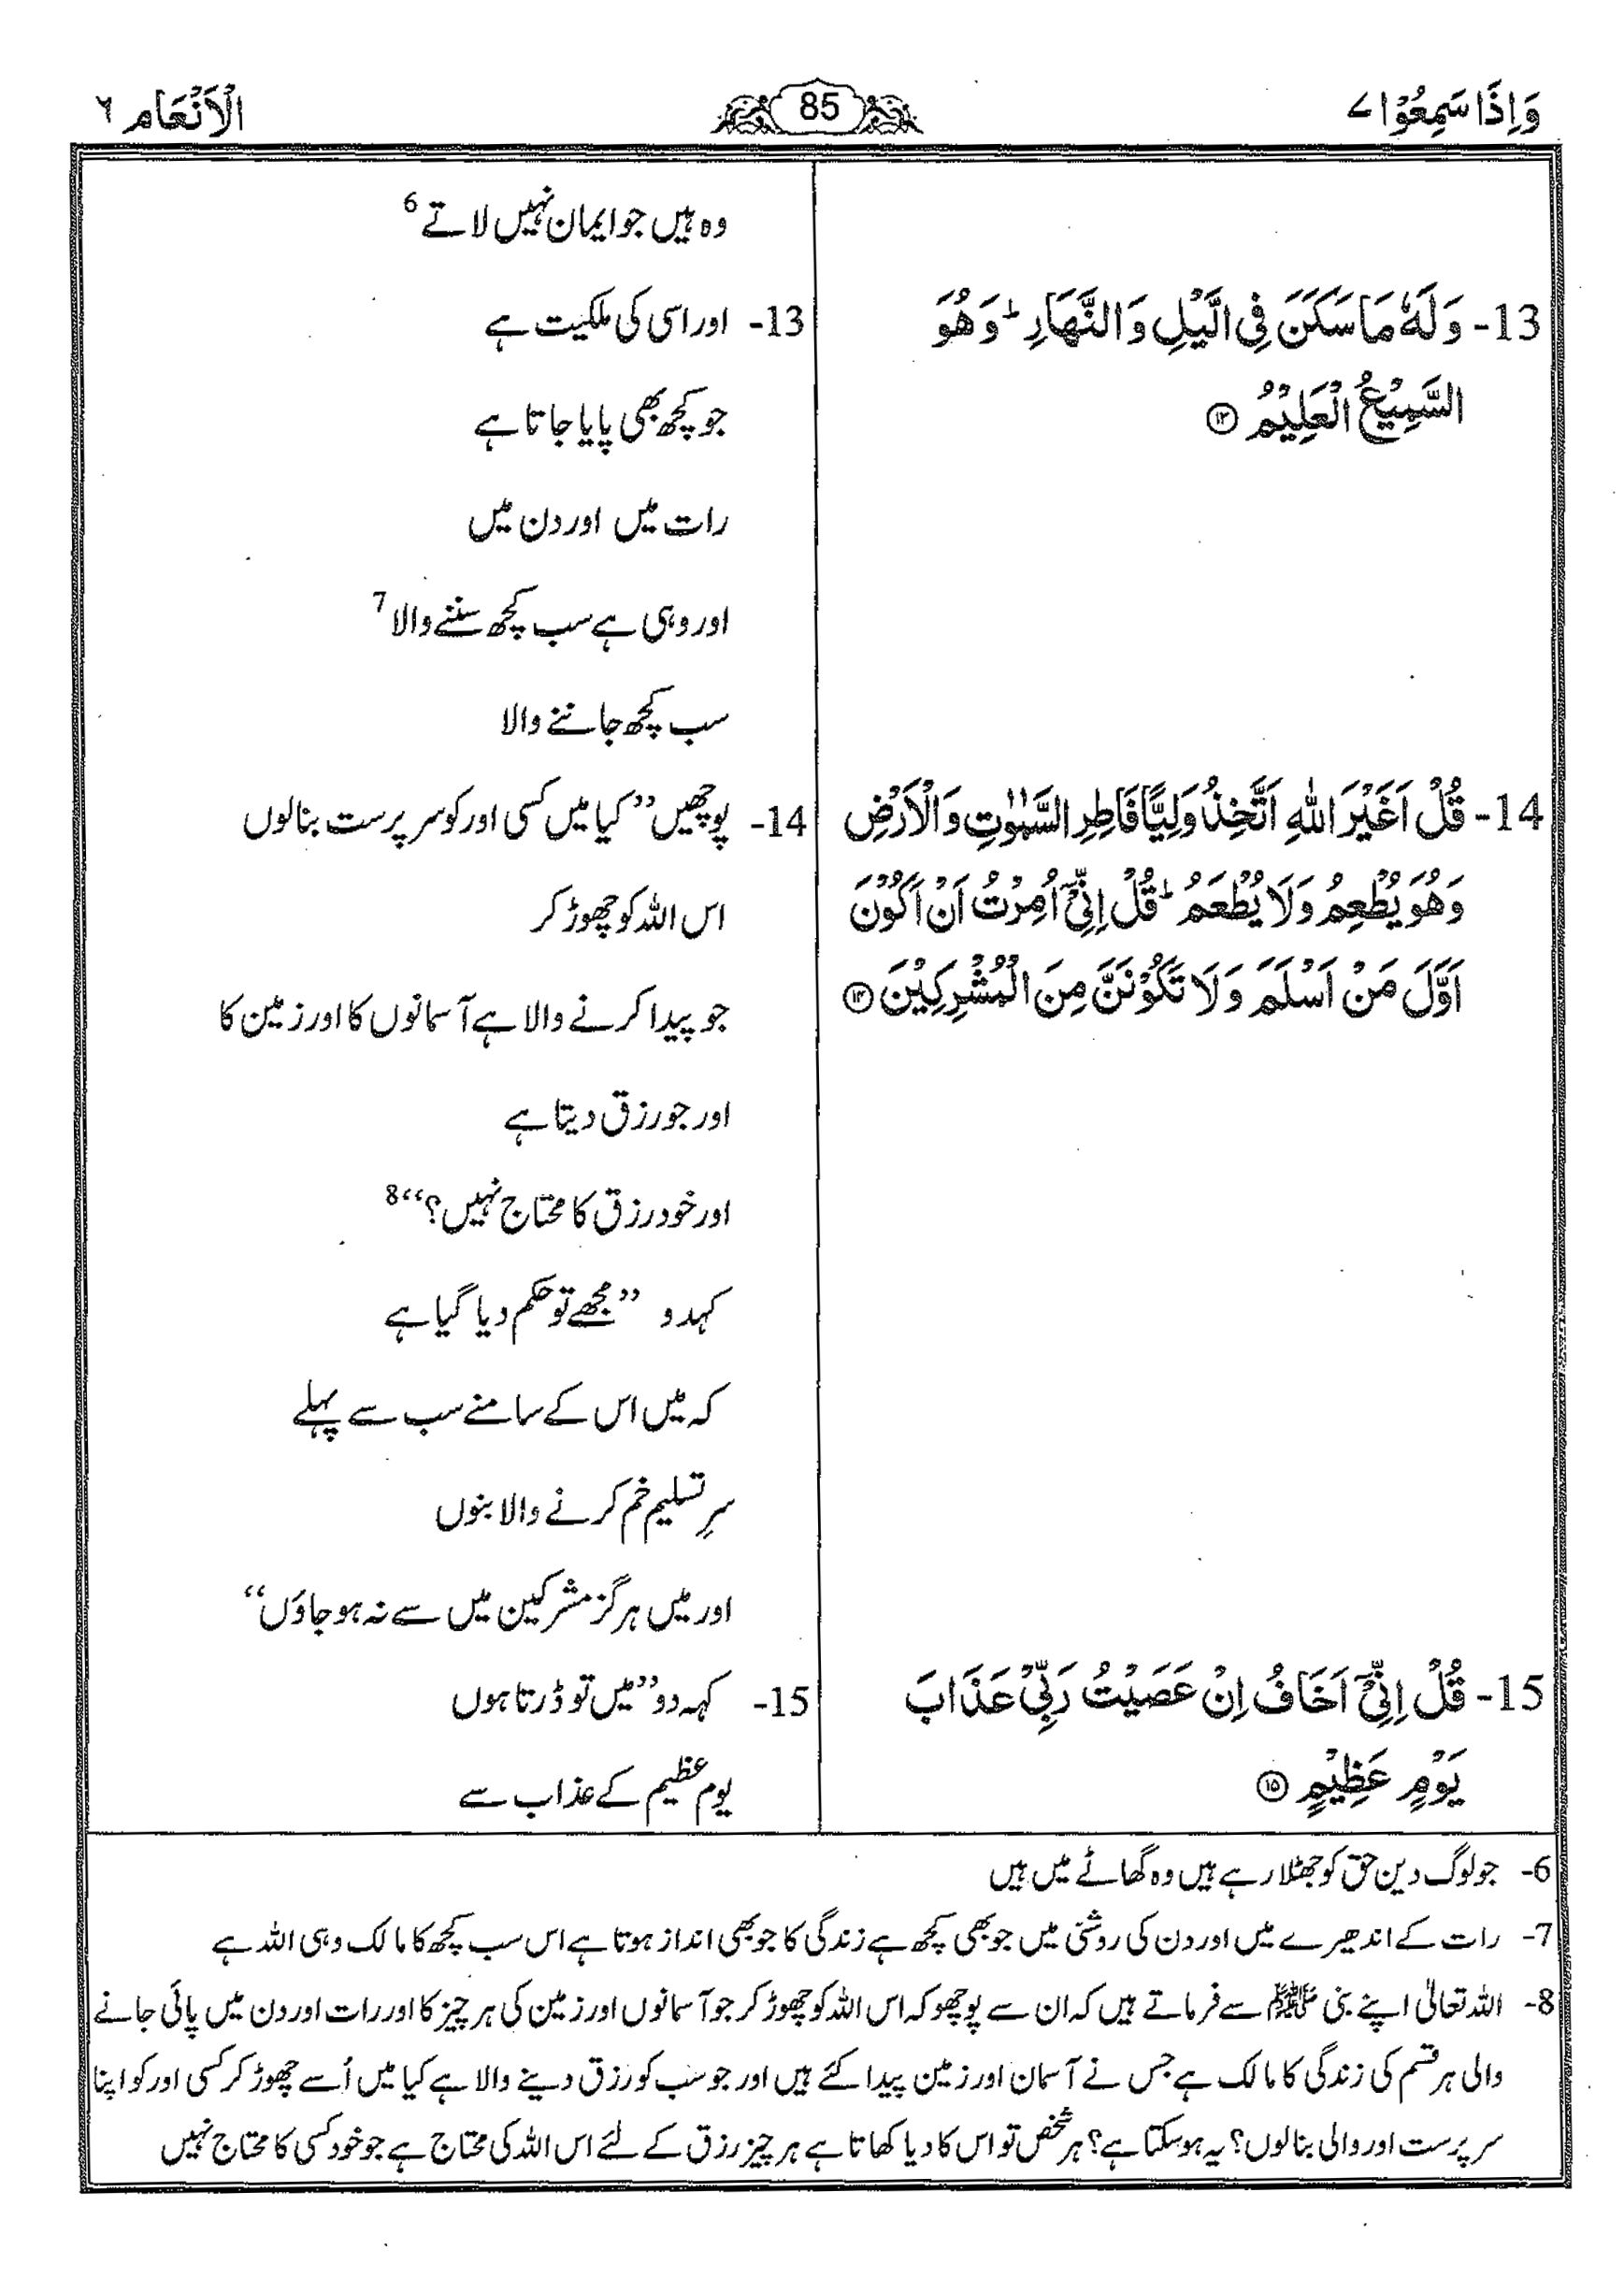 وَاِذَا سَمِعُوْا ۷
85
الْاَنْعَام ٦
13- وَلَهٗ مَا سَكَنَ فِي الَّيْلِ وَالنَّهَارِ ؕ وَهُوَ
السَّمِيْعُ الْعَلِيْمُ ⑬
14- قُلْ اَغَيْرَ اللّٰهِ اَتَّخِذُ وَلِيًّا فَاطِرِ السَّمٰوٰتِ وَالْاَرْضِ
وَهُوَ يُطْعِمُ وَلَا يُطْعَمُ ؕ قُلْ اِنِّيْۤ اُمِرْتُ اَنْ اَكُوْنَ
اَوَّلَ مَنْ اَسْلَمَ وَلَا تَكُوْنَنَّ مِنَ الْمُشْرِكِيْنَ ⑭
15- قُلْ اِنِّيْۤ اَخَافُ اِنْ عَصَيْتُ رَبِّيْ عَذَابَ
يَوْمٍ عَظِيْمٍ ⑮
وہ ہیں جو ایمان نہیں لاتے 6
13- اور اسی کی ملکیت ہے
جو کچھ بھی پایا جاتا ہے
رات میں اور دن میں
اور وہی ہے سب کچھ سننے والا 7
سب کچھ جاننے والا
14- پوچھیں ”کیا میں کسی اور کو سرپرست بنالوں
اس اللہ کو چھوڑ کر
جو پیدا کرنے والا ہے آسمانوں کا اور زمین کا
اور جو رزق دیتا ہے
اور خود رزق کا محتاج نہیں؟“ 8
کہدو ”مجھے تو حکم دیا گیا ہے
کہ میں اس کے سامنے سب سے پہلے
سرِ تسلیم خم کرنے والا بنوں
اور میں ہرگز مشرکین میں سے نہ ہو جاؤں“
15- کہہ دو ”میں تو ڈرتا ہوں
یومِ عظیم کے عذاب سے
6- جو لوگ دین حق کو جھٹلا رہے ہیں وہ گھاٹے میں ہیں
7- رات کے اندھیرے میں اور دن کی روشنی میں جو بھی کچھ ہے زندگی کا جو بھی انداز ہوتا ہے اس سب کچھ کا مالک وہی اللہ ہے
8- اللہ تعالیٰ اپنے نبی ﷺ سے فرماتے ہیں کہ ان سے پوچھو کہ اس اللہ کو چھوڑ کر جو آسمانوں اور زمین کی ہر چیز کا اور رات اور دن میں پائی جانے
والی ہر قسم کی زندگی کا مالک ہے جس نے آسمان اور زمین پیدا کئے ہیں اور جو سب کو رزق دینے والا ہے کیا میں اُسے چھوڑ کر کسی اور کو اپنا
سرپرست اور والی بنالوں؟ یہ ہو سکتا ہے؟ ہر شخص تو اس کا دیا کھاتا ہے ہر چیز رزق کے لئے اس اللہ کی محتاج ہے جو خود کسی کا محتاج نہیں